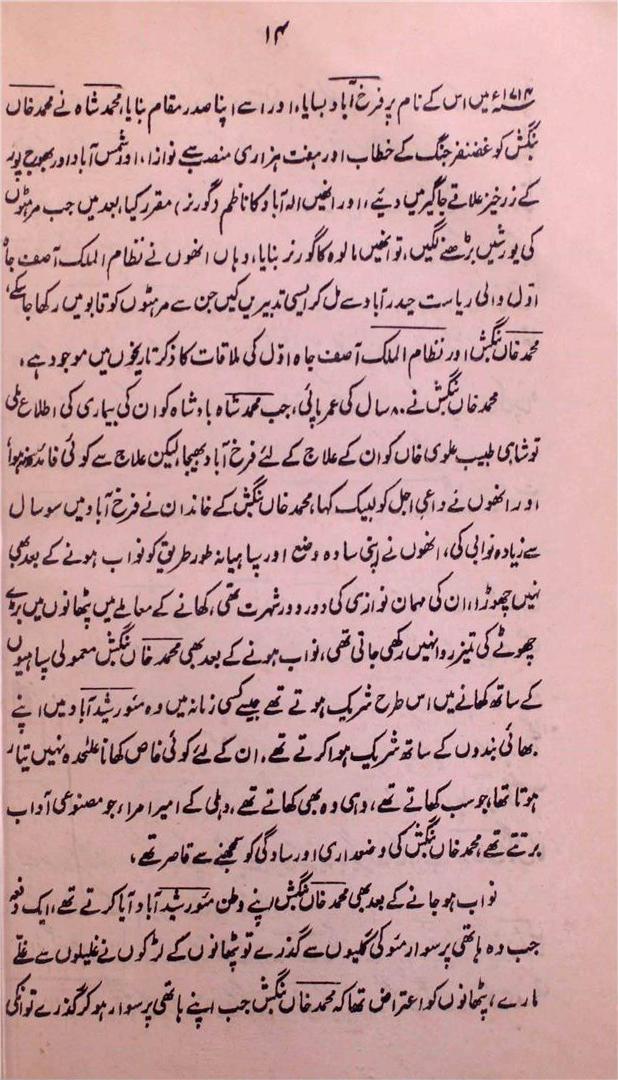 ۱۴
۱۷۱۴ء میں اس کے نام پر فرخ آباد بسایا، اور اسے اپنا صدر مقام بنایا، محمد شاہ نے محمد خاں
بنگش کو غضنفر جنگ کے خطاب اور ہفت ہزاری منصب سے نوازا، اور شمس آباد اور بھوج پور
کے زرخیز علاقے جاگیر میں دیئے، اور انھیں الہ آباد کا ناظم (گورنر) مقرر کیا، بعد میں جب مرہٹوں
کی یورشیں بڑھنے لگیں، تو انھیں مالوہ کا گورنر بنایا، وہاں انھوں نے نظام الملک آصف جاہ
اوّل والی ریاست حیدر آباد سے مل کر ایسی تدبیریں کیں جن سے مرہٹوں کو قابو میں رکھا جا سکے،
محمد خاں بنگش اور نظام الملک آصف جاہ اوّل کی ملاقات کا ذکر تاریخوں میں موجود ہے،
محمد خاں بنگش نے ۸۰ سال کی عمر پائی، جب محمد شاہ بادشاہ کو ان کی بیماری کی اطلاع ملی
تو شاہی طبیب علوی خاں کو ان کے علاج کے لئے فرخ آباد بھیجا، لیکن علاج سے کوئی فائدہ نہ ہوا
اور انھوں نے داعی اجل کو لبیک کہا، محمد خاں بنگش کے خاندان نے فرخ آباد میں سو سال
سے زیادہ نوابی کی، انھوں نے اپنی سادہ وضع اور سپاہیانہ طور طریق کو نواب ہونے کے بعد بھی
نہیں چھوڑا، ان کی مہمان نوازی کی دور دور شہرت تھی، کھانے کے معاملے میں پٹھانوں میں بڑے
چھوٹے کی تمیز روا نہیں رکھی جاتی تھی، نواب ہونے کے بعد بھی محمد خاں بنگش معمولی سپاہیوں
کے ساتھ کھانے میں اس طرح شریک ہوتے تھے جیسے کسی زمانہ میں وہ مئو رشید آباد میں اپنے
بھائی بندوں کے ساتھ شریک ہوا کرتے تھے۔ ان کے لئے کوئی خاص کھانا علٰحدہ نہیں تیار
ہوتا تھا، جو سب کھاتے تھے، وہی وہ بھی کھاتے تھے، دہلی کے امیر امراء، جو مصنوعی آداب
برتتے تھے، محمد خاں بنگش کی وضعداری اور سادگی کو سمجھنے سے قاصر تھے،
نواب ہو جانے کے بعد بھی محمد خاں بنگش اپنے وطن مئو رشید آباد آیا کرتے تھے، ایک دفعہ
جب وہ ہاتھی پر سوار مئو کی گلیوں سے گذرے تو پٹھانوں کے لڑکوں نے غلیلوں سے غلّے
مارے، پٹھانوں کو اعتراض تھا کہ محمد خاں بنگش جب اپنے ہاتھی پر سوار ہو کر گذرے تو انکی